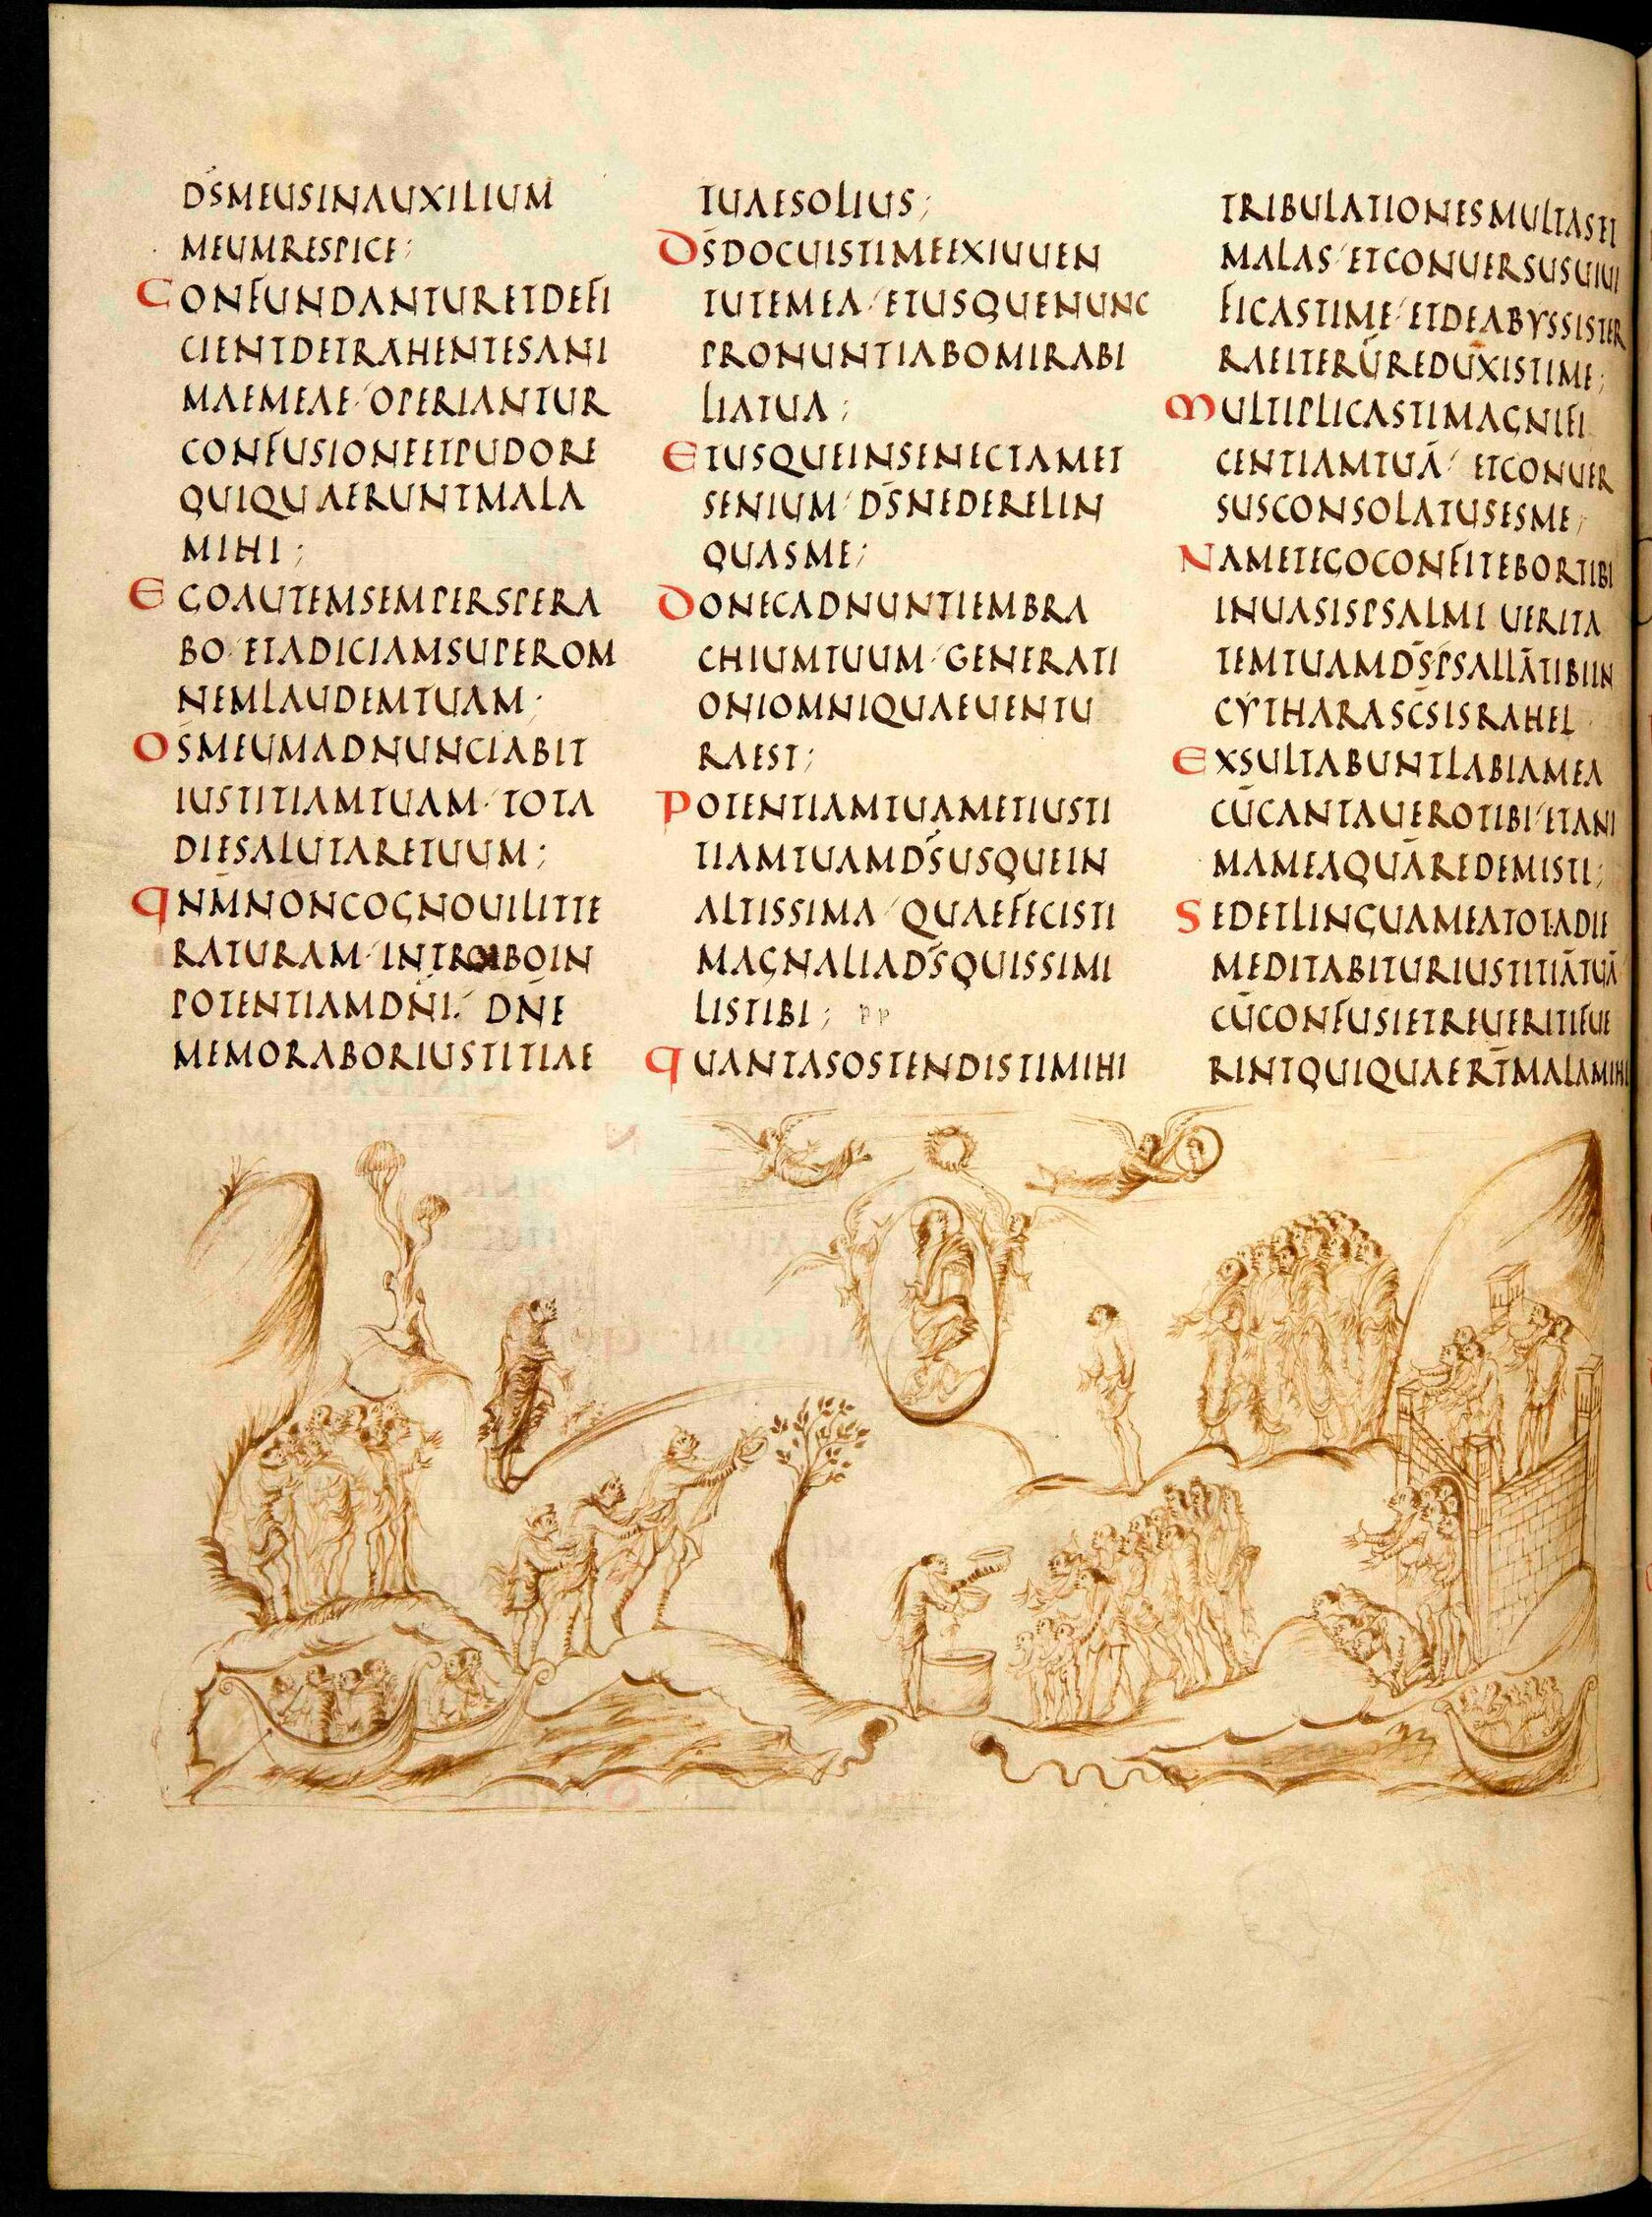 DS̄MEUSINAUXILIUM
MEUMRESPICE;
CONFUNDANTURETDEFI
CIENTDETRAHENTESANI
MAEMEAE·OPERIANTUR
CONFUSIONEETPUDORE
QUIQUAERUNTMALA
MIHI;
EGOAUTEMSEMPERSPERA
BO·ETADICIAMSUPEROM
NEMLAUDEMTUAM;
OSMEUMADNUNCIABIT
IUSTITIAMTUAM·TOTA
DIESALUTARETUUM;
QNM̄NONCOGNOUILITTE
RATURAM·INTROIBOIN
POTENTIAMDN̄I·DN̄E
MEMORABORIUSTITIAE
TUAESOLIUS;
DS̄DOCUISTIMEEXIUUEN
TUTEMEA·ETUSQUENUNC
PRONUNTIABOMIRABI
LIATUA;
ETUSQUEINSENECTAMET
SENIUM·DS̄NEDERELIN
QUASME;
DONECADNUNTIEMBRA
CHIUMTUUM·GENERATI
ONIOMNIQUAEUENTU
RAEST;
POTENTIAMTUAMETIUSTI
TIAMTUAMDS̄USQUEIN
ALTISSIMA·QUAEFECISTI
MAGNALIADS̄QUISSIMI
LISTIBI; PP
QUANTASOSTENDISTIMIHI
TRIBULATIONESMULTASET
MALAS·ETCONUERSUSUIUI
FICASTIME·ETDEABYSSISTER
RAEITERŪREDUXISTIME;
MULTIPLICASTIMAGNIFI
CENTIAMTUĀ·ETCONUER
SUSCONSOLATUSESME;
NAMETEGOCONFITEBORTIBI
INUASISPSALMI UERITA
TEMTUAMDS̄·PSALLĀTIBIIN
CYTHARASC̄SISRAHEL
EXSULTABUNTLABIAMEA
CŪCANTAUEROTIBI·ETANI
MAMEAQUĀREDEMISTI;
SEDETLINGUAMEATOTADIE
MEDITABITURIUSTITIĀTUĀ
CŪCONFUSIETREUERITIFUE
RINTQUIQUAERT̄MALAMIHI